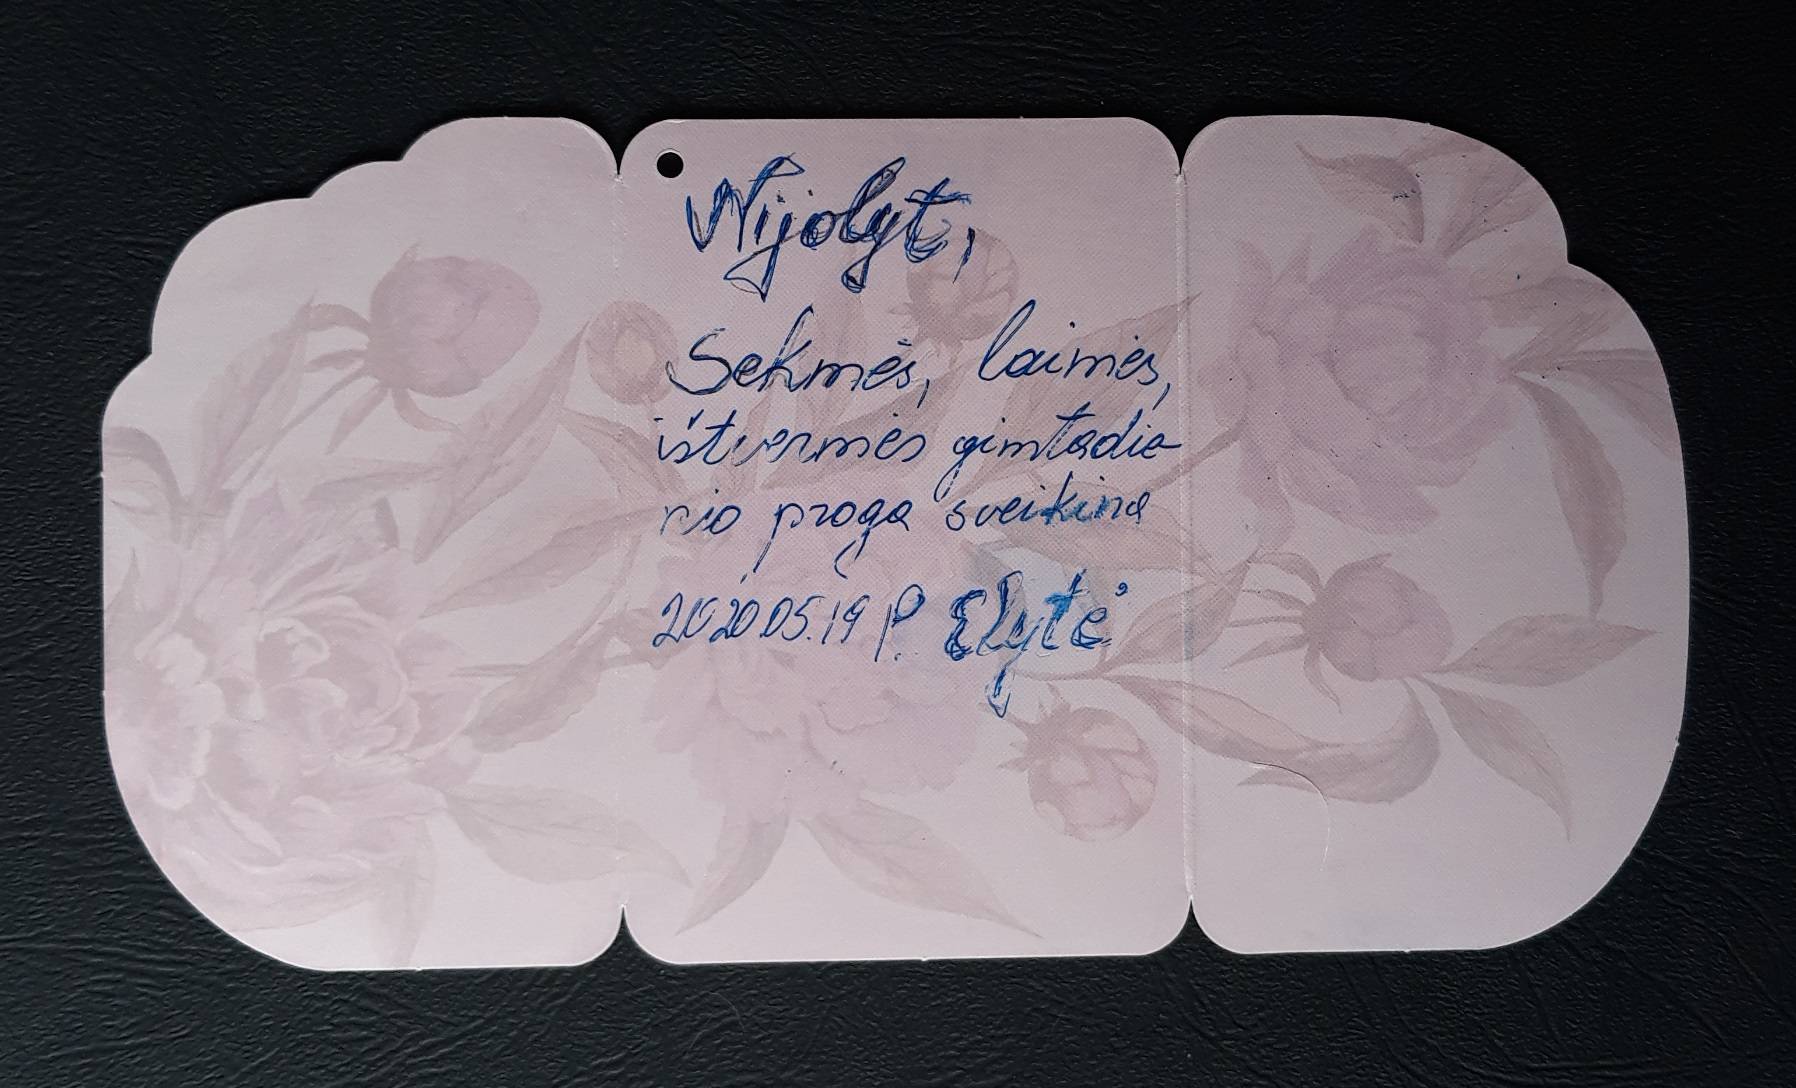 Nijolyt,
Sekmės, laimės,
ištvermės gimtadie
nio proga sveikina
2020.05.19 P. Elytė